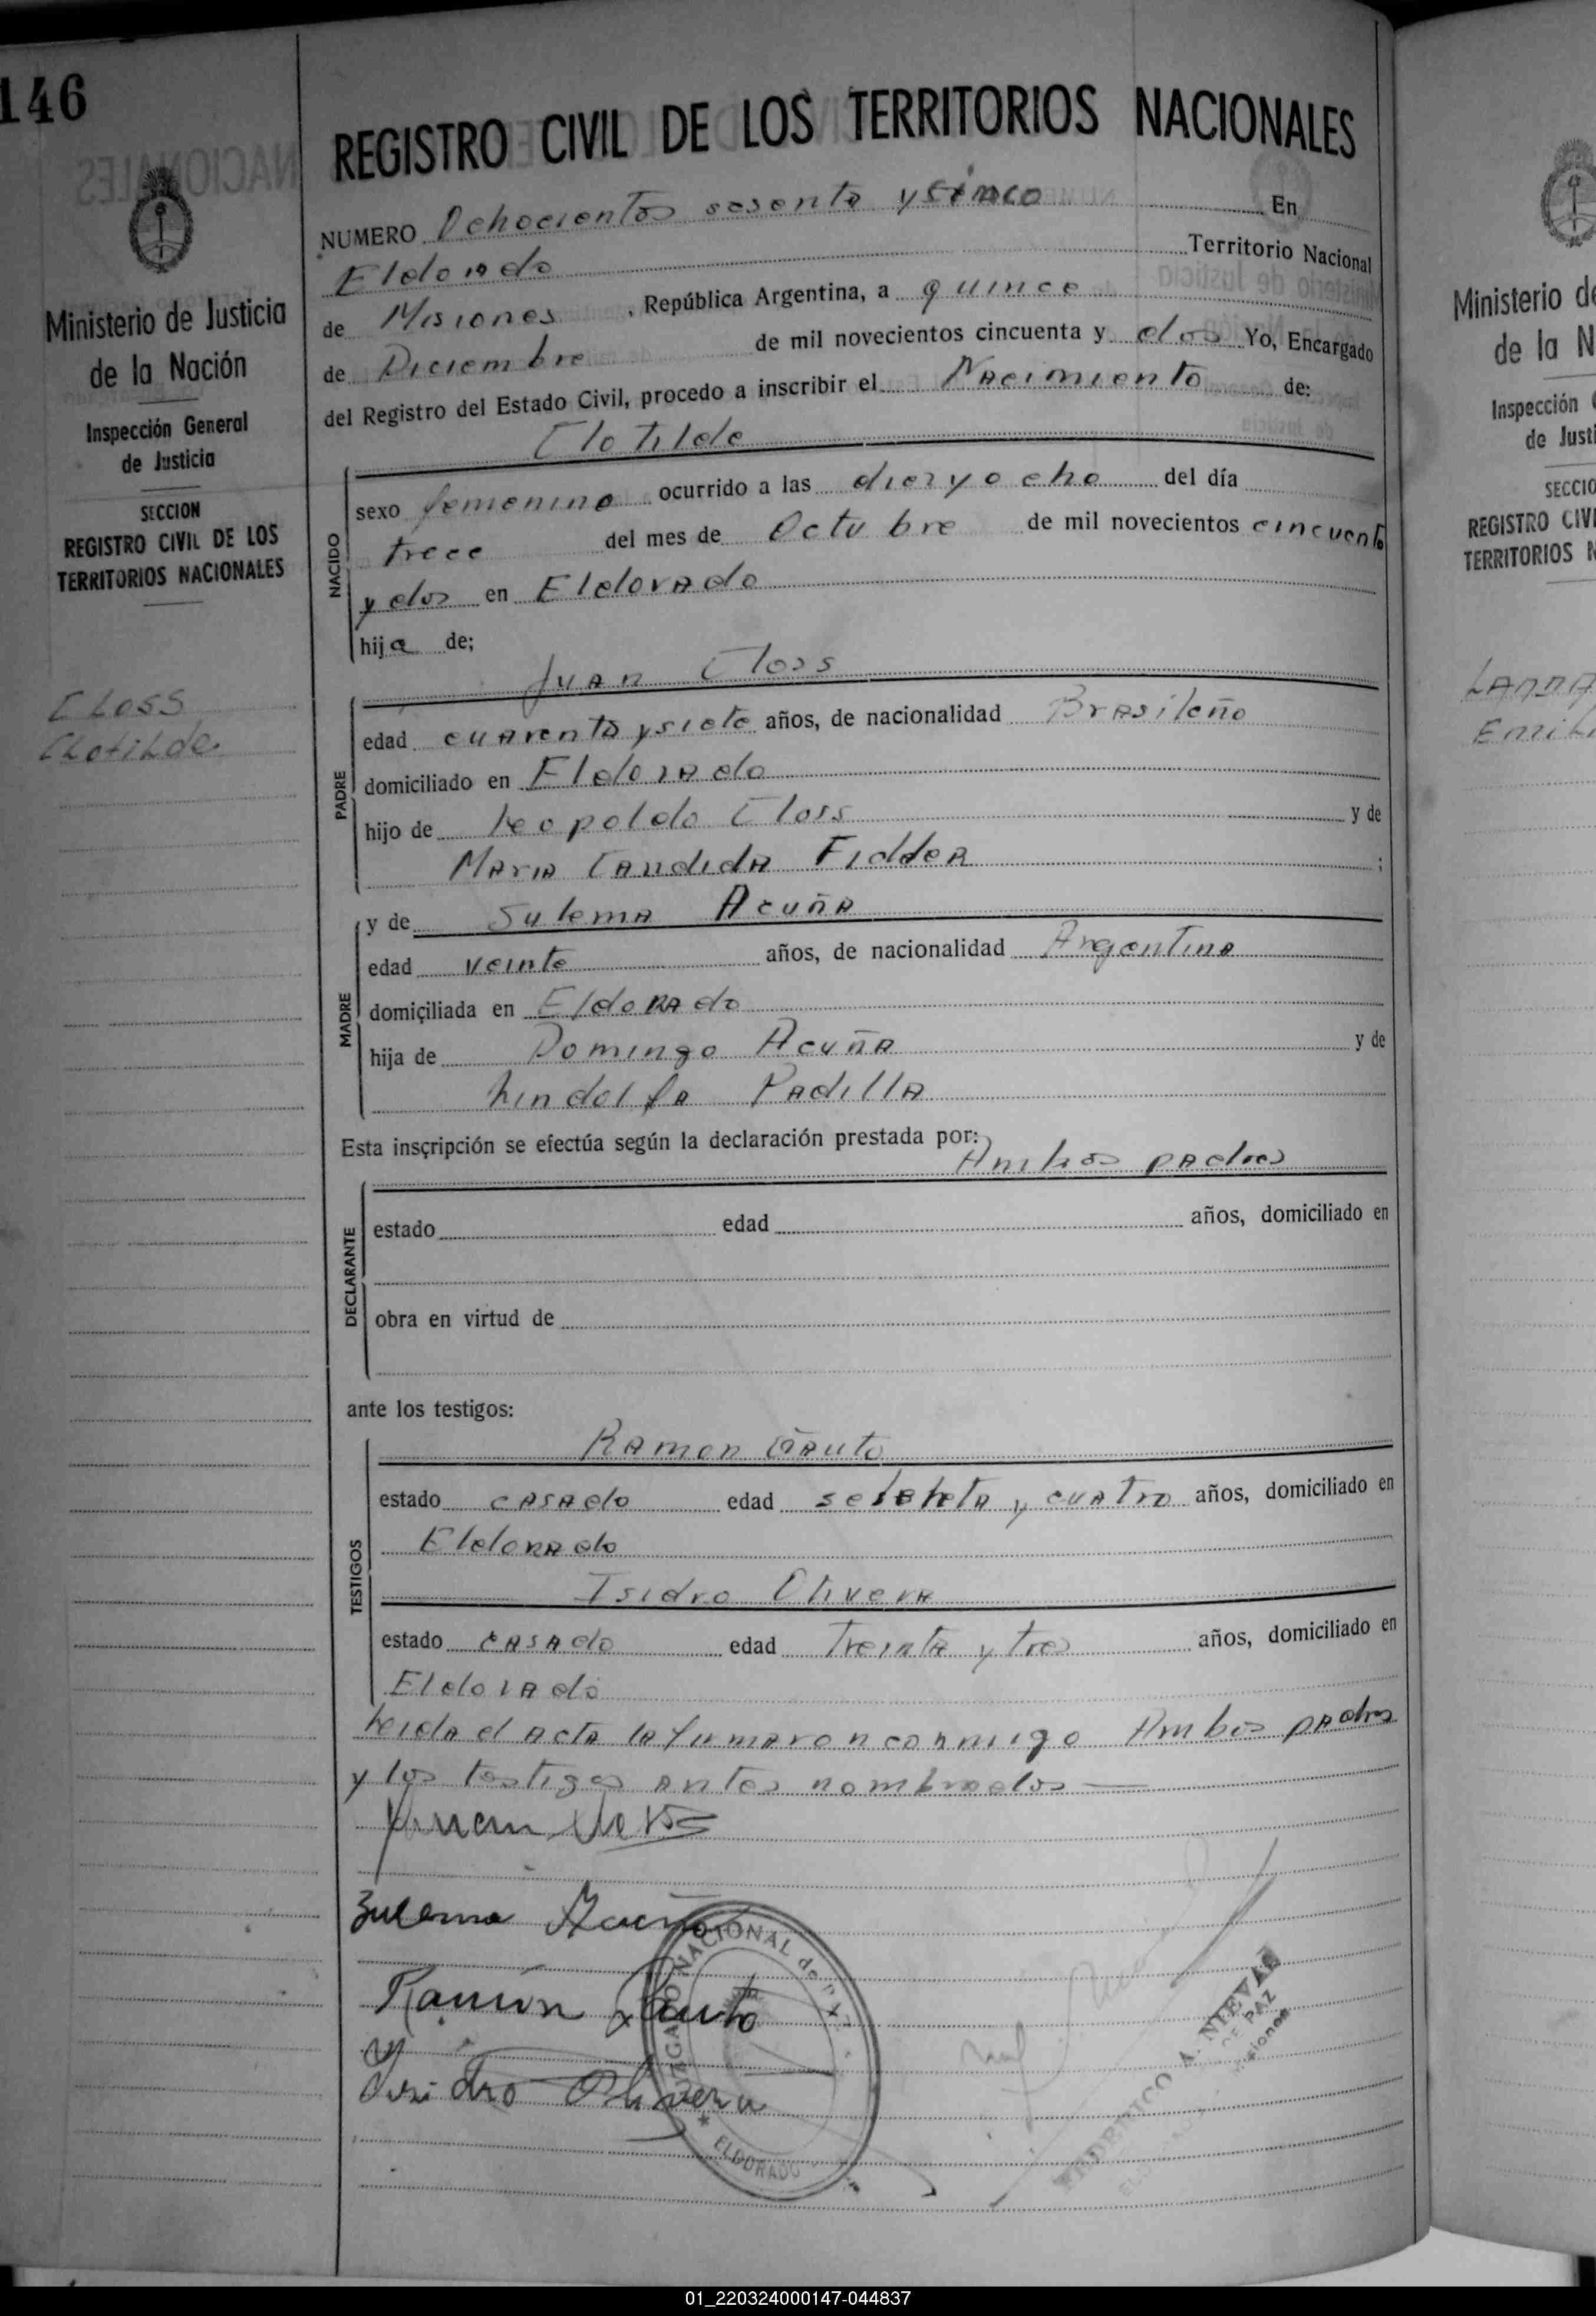 146
REGISTRO CIVIL DE LOS TERRITORIOS NACIONALES
NUMERO Ochocientos sesenta y cinco En
Eldorado Territorio Nacional
de Misiones, República Argentina, a quince
de Diciembre de mil novecientos cincuenta y dos Yo, Encargado
del Registro del Estado Civil, procedo a inscribir el Nacimiento de:
Clotilde
Ministerio de Justicia
de la Nación
Inspección General
de Justicia
SECCION
REGISTRO CIVIL DE LOS
TERRITORIOS NACIONALES
CLoss
CLotiLde.
NACIDO
sexo femenino ocurrido a las diez y ocho del día
trece del mes de Octubre de mil novecientos cincuenta
y dos en Eldorado
hija de;
Juan Closs
PADRE
edad cuarenta y siete años, de nacionalidad Brasileño
domiciliado en Eldorado
hijo de Leopoldo Closs y de
Maria Candida Fidder;
MADRE
y de Sulema Acuña
edad veinte años, de nacionalidad Argentina
domiciliada en Eldorado
hija de Domingo Acuña y de
Lindolfa Padilla
Esta inscripción se efectúa según la declaración prestada por:
Ambos padres
DECLARANTE
estado edad años, domiciliado en
obra en virtud de
ante los testigos:
TESTIGOS
Ramon Gauto
estado casado edad setenta y cuatro años, domiciliado en
Eldorado
Isidro Olivera
estado casado edad treinta y tres años, domiciliado en
Eldorado
Leida el acta la firmaron conmigo Ambos padres
y los testigos antes nombrados
Juan Closs
Zulema Acuña
Ramón Gauto
Isidro Olivera
JUZGADO NACIONAL de PAZ
ELDORADO
FEDERICO A. NIEVAS
DE PAZ
Misiones
Ministerio de
de la N
Inspección
de Justi
SECCIO
REGISTRO CIVI
TERRITORIOS N
LANNA
EmiL
01_220324000147-044837